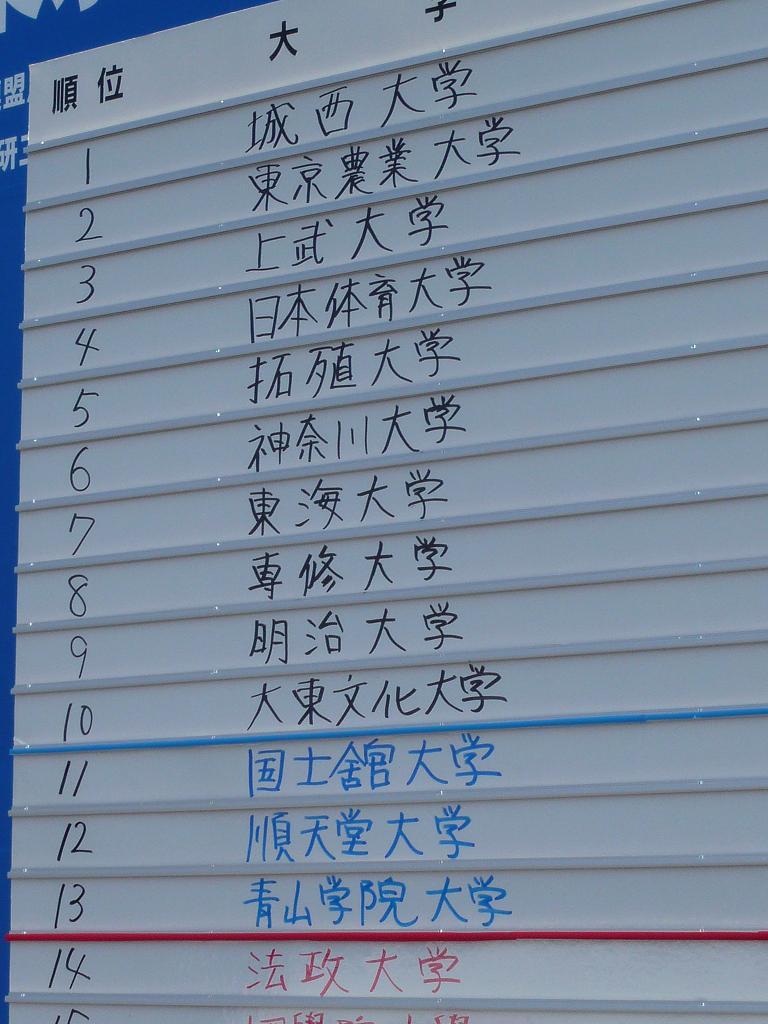 盟
研
順位 大学
1 城西大学
2 東京農業大学
3 上武大学
4 日本体育大学
5 拓殖大学
6 神奈川大学
7 東海大学
8 専修大学
9 明治大学
10 大東文化大学
11 国士舘大学
12 順天堂大学
13 青山学院大学
14 法政大学
15 國學院大學